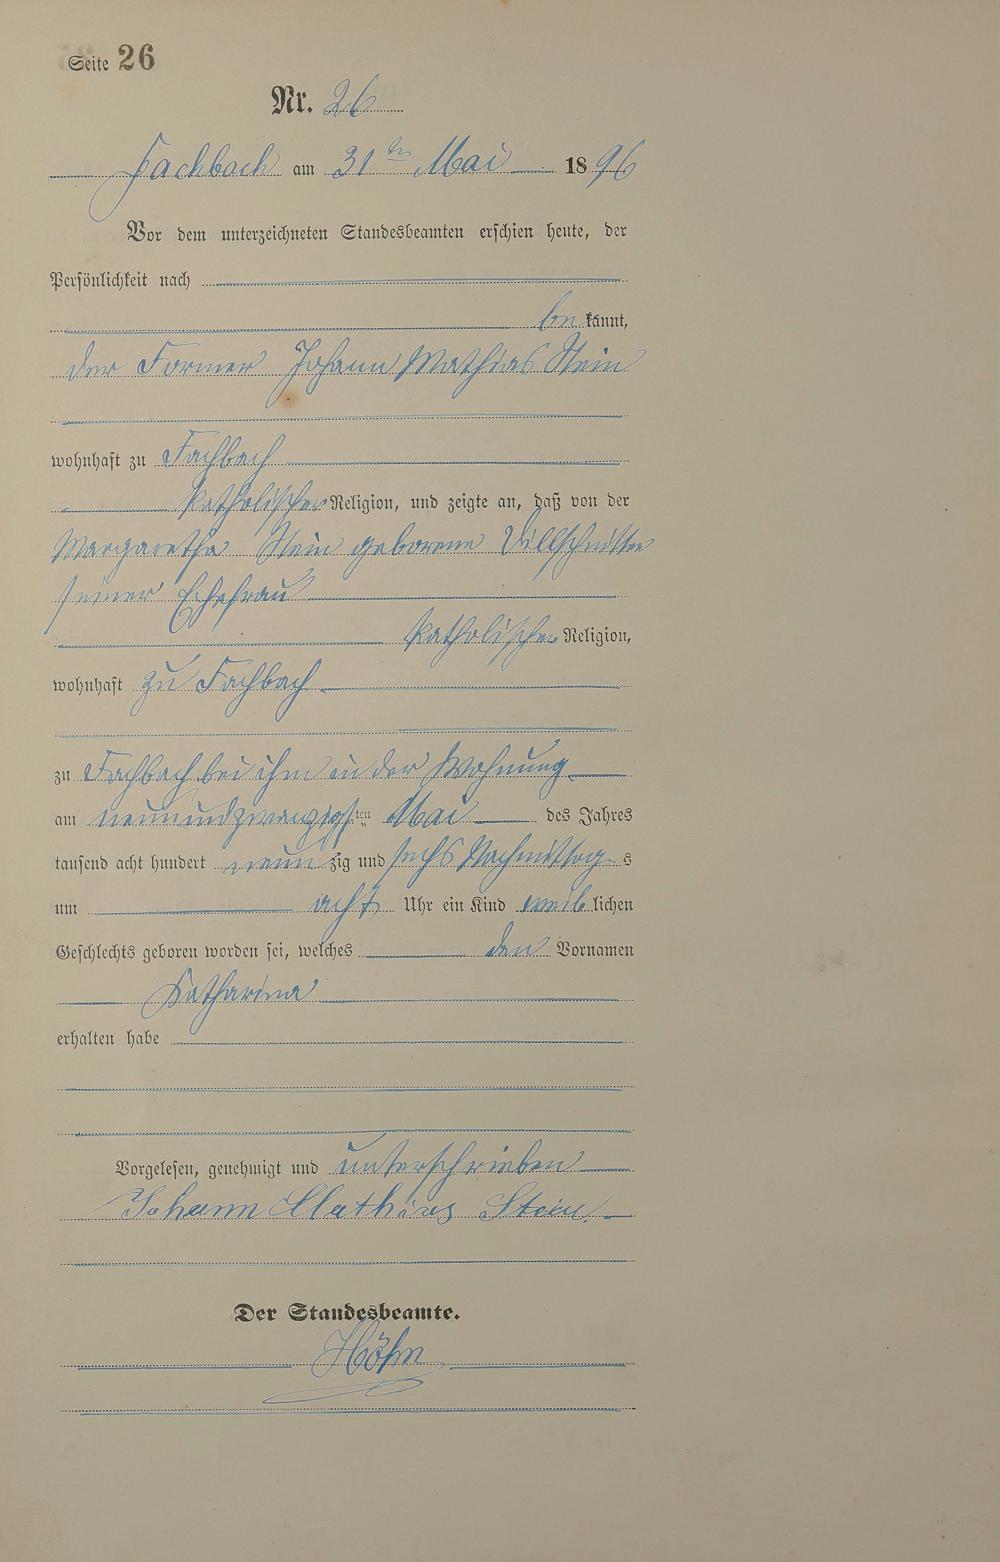 Seite 26
Nr. 26
Fachbach am 31ten Mai 1896
Vor dem unterzeichneten Standesbeamten erschien heute, der
Persönlichkeit nach
be kannt,
der Former Johann Mathias Stein
wohnhaft zu Fachbach
katholischer Religion, und zeigte an, daß von der
Margaretha Stein geborene
seiner Ehefrau
katholischer Religion,
wohnhaft zu Fachbach
zu Fachbach bei ihm in der Wohnung
am neunundzwanzigsten Mai des Jahres
tausend acht hundert neun zig und sechs Nachmittag s
um acht Uhr ein Kind weib lichen
Geschlechts geboren worden sei, welches den Vornamen
Katharina
erhalten habe
Vorgelesen, genehmigt und unterschrieben
Johann Mathias Stein.
Der Standesbeamte.
Höhn